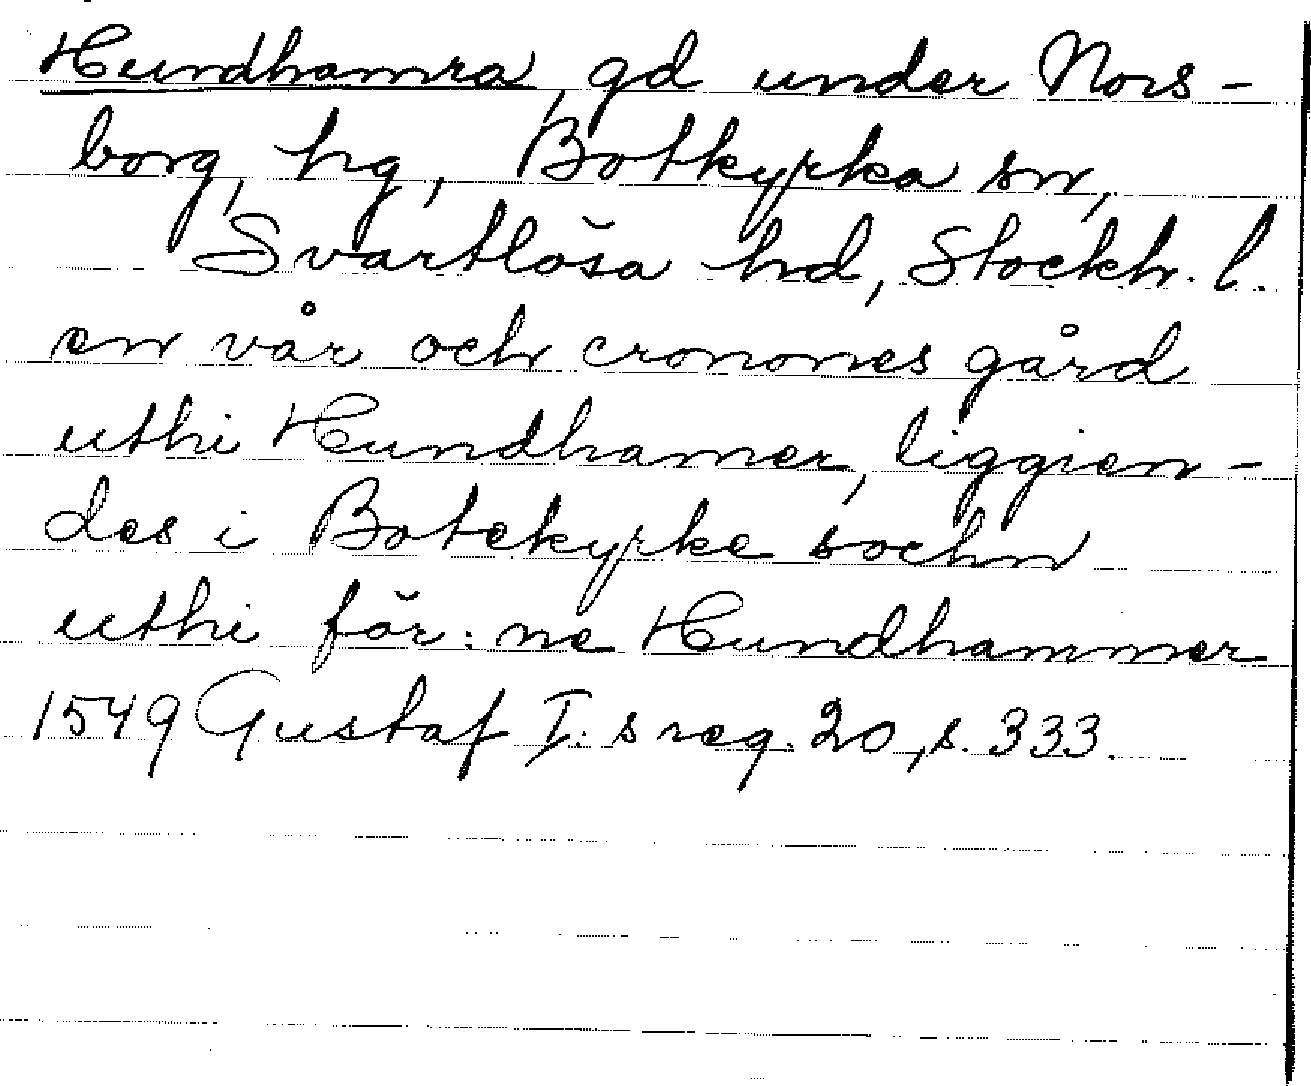 Hundhamra, gd under Nors-
borg, hg, Botkyrka sn,
Svartlösa hd, Stockh. l.
en vår och cronones gård
uthi Hundhamer, liggien-
des i Botekyrke sochn
uthi för:ne Hundhammer
1549 Gustaf I:s reg. 20, s. 333.